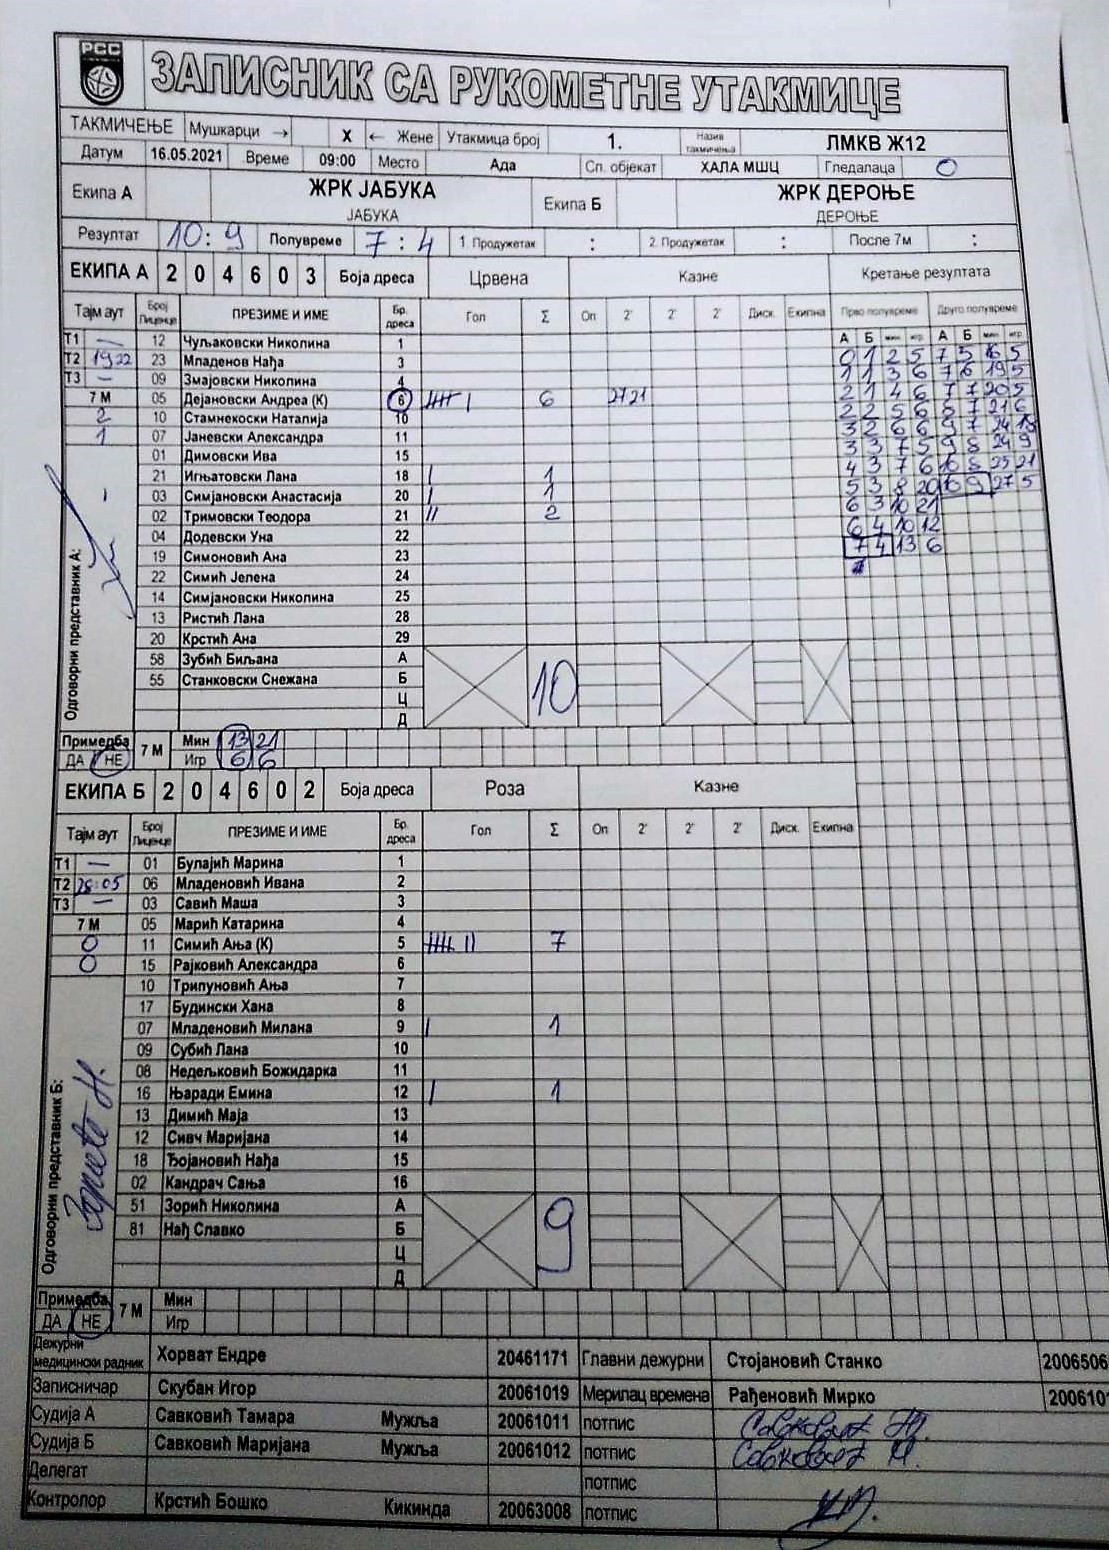 РСС
ЗАПИСНИК СА РУКОМЕТНЕ УТАКМИЦЕ
ТАКМИЧЕЊЕ Мушкарци → X ← Жене Утакмица број 1. Назив такмичења ЛМКВ Ж12
Датум 16.05.2021 Време 09:00 Место Ада Сп. објекат ХАЛА МШЦ Гледалаца 0
Екипа А ЖРК ЈАБУКА Екипа Б ЖРК ДЕРОЊЕ
ЈАБУКА ДЕРОЊЕ
Резултат 10 : 9 Полувреме 7 : 4 1. Продужетак : 2. Продужетак : После 7м :
ЕКИПА А 2 0 4 6 0 3 Боја дреса Црвена Казне Кретање резултата
Тајм аут Број Лиценце ПРЕЗИМЕ И ИМЕ Бр. дреса Гол Σ Оп 2' 2' 2' Диск. Екипна Прво полувреме Друго полувреме
А Б мин игр А Б мин игр
Т1 — 12 Чуљаковски Николина 1
Т2 19 22 23 Младенов Нађа 3 0 1 2 5 7 5 16 5
Т3 — 09 Змајовски Николина 4 1 1 3 6 7 6 19 5
7 М 05 Дејановски Андреа (К) 6 IIII I 6 2121 2 1 4 6 7 7 20 5
2 10 Стамнекоски Наталија 10 2 2 5 6 8 7 21 6
1 07 Јаневски Александра 11 3 2 6 6 9 7 24 18
01 Димовски Ива 15 3 3 7 5 9 8 24 9
21 Игњатовски Лана 18 I 1 4 3 7 6 10 8 25 21
03 Симјановски Анастасија 20 I 1 5 3 8 20 10 9 27 5
02 Тримовски Теодора 21 II 2 6 3 10 21
04 Додевски Уна 22 6 4 10 12
19 Симоновић Ана 23 7 4 13 6
22 Симић Јелена 24
14 Симјановски Николина 25
13 Ристић Лана 28
20 Крстић Ана 29
58 Зубић Биљана А
55 Станковски Снежана Б 10
Ц
Д
Одговорни представник А:
Примедба 7 М Мин 13 21
ДА НЕ Игр 6 6
ЕКИПА Б 2 0 4 6 0 2 Боја дреса Роза Казне
Тајм аут Број Лиценце ПРЕЗИМЕ И ИМЕ Бр. дреса Гол Σ Оп 2' 2' 2' Диск. Екипна
Т1 — 01 Булајић Марина 1
Т2 25:05 06 Младеновић Ивана 2
Т3 — 03 Савић Маша 3
7 М 05 Марић Катарина 4
0 11 Симић Ања (К) 5 IIII II 7
0 15 Рајковић Александра 6
10 Трипуновић Ања 7
17 Будински Хана 8
07 Младеновић Милана 9 I 1
09 Субић Лана 10
08 Недељковић Божидарка 11
16 Њаради Емина 12 I 1
13 Димић Маја 13
12 Сивч Маријана 14
18 Ђојановић Нађа 15
02 Кандрач Сања 16
51 Зорић Николина А
81 Нађ Славко Б 9
Ц
Д
Одговорни представник Б:
Примедба 7 М Мин
ДА НЕ Игр
Дежурни медицински радник Хорват Ендре 20461171 Главни дежурни Стојановић Станко 2006506
Записничар Скубан Игор 20061019 Мерилац времена Рађеновић Мирко 200610
Судија А Савковић Тамара Мужља 20061011 потпис
Судија Б Савковић Маријана Мужља 20061012 потпис
Делегат потпис
Контролор Крстић Бошко Кикинда 20063008 потпис